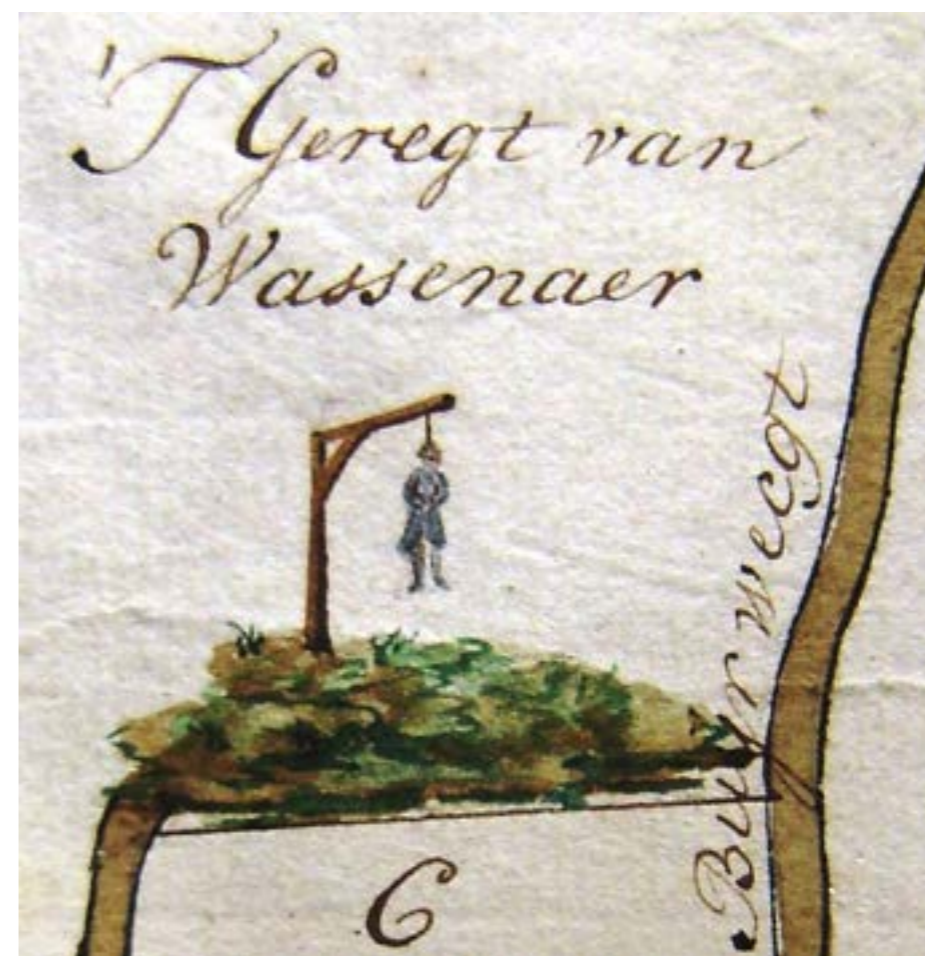 'T Geregt van
Wassenaer
Buurwegt
C